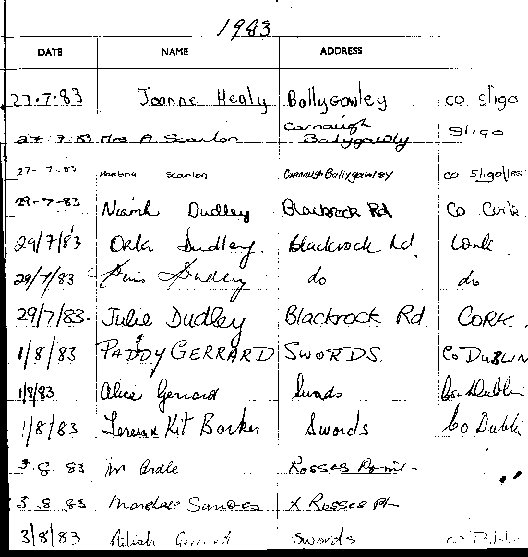 1983
DATE NAME ADDRESS
27.7.83 Joanne Healy Ballygawley co sligo
27.7.83 Mrs A Scanlon Carnaugh Ballygawley Sligo
27-7-83 Scanlon Ballygawley co sligo
29-7-83 Niamh Dudley Blackrock Rd Co Cork
29/7/83 Orla Dudley. Blackrock Rd. Cork
29/7/83 Dudley do do
29/7/83. Julie Dudley Blackrock Rd CORK.
1/8/83 PADDY GERRARD SWORDS. Co DUBLIN
1/8/83 Alice Gerrard Swords Co. Dublin
1/8/83 Teresa & Kit Barker Swords Co Dublin
3.8.83 Rosses Point
3.8.83 Rosses Pt
3/8/83 Swords